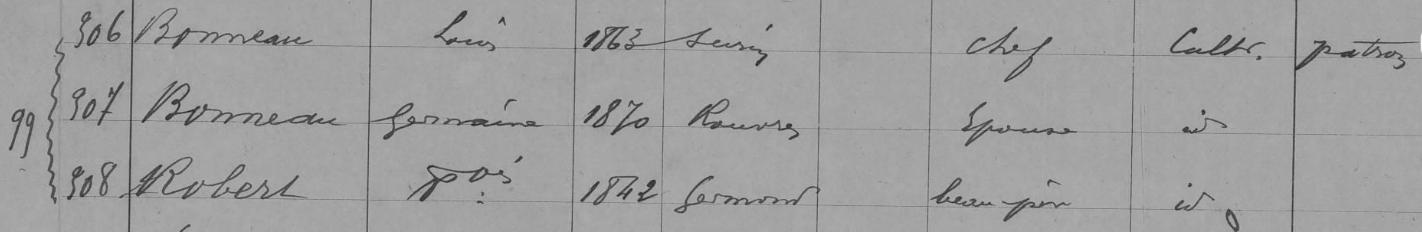 306 Bonneau Louis 1863 Surin chef Cultr. patron
99 307 Bonneau Germaine 1870 Rouvres Epouse id
308 Robert 1842 Germond beau-père id